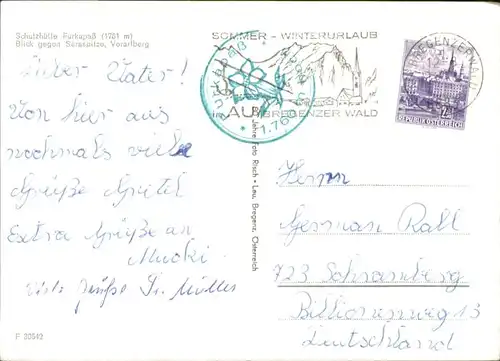 Schutzhütte Furkapaß (1761 m)
Blick gegen Sünserspitze, Vorarlberg
Lieber Vater!
Von hier aus
nochmals viele
Grüße Gretel
Extra Grüße an
Mucki
Viele Grüße Fr. Müller
F 30542
SOMMER - WINTERURLAUB
FURKAPAß
in AU BREGENZER WALD
1.76
BREGENZERWALD
2
REPUBLIK ÖSTERREICH
Foto Risch-Lau, Bregenz, Österreich
Herrn
German Rall
723 Schramberg
Deutschland